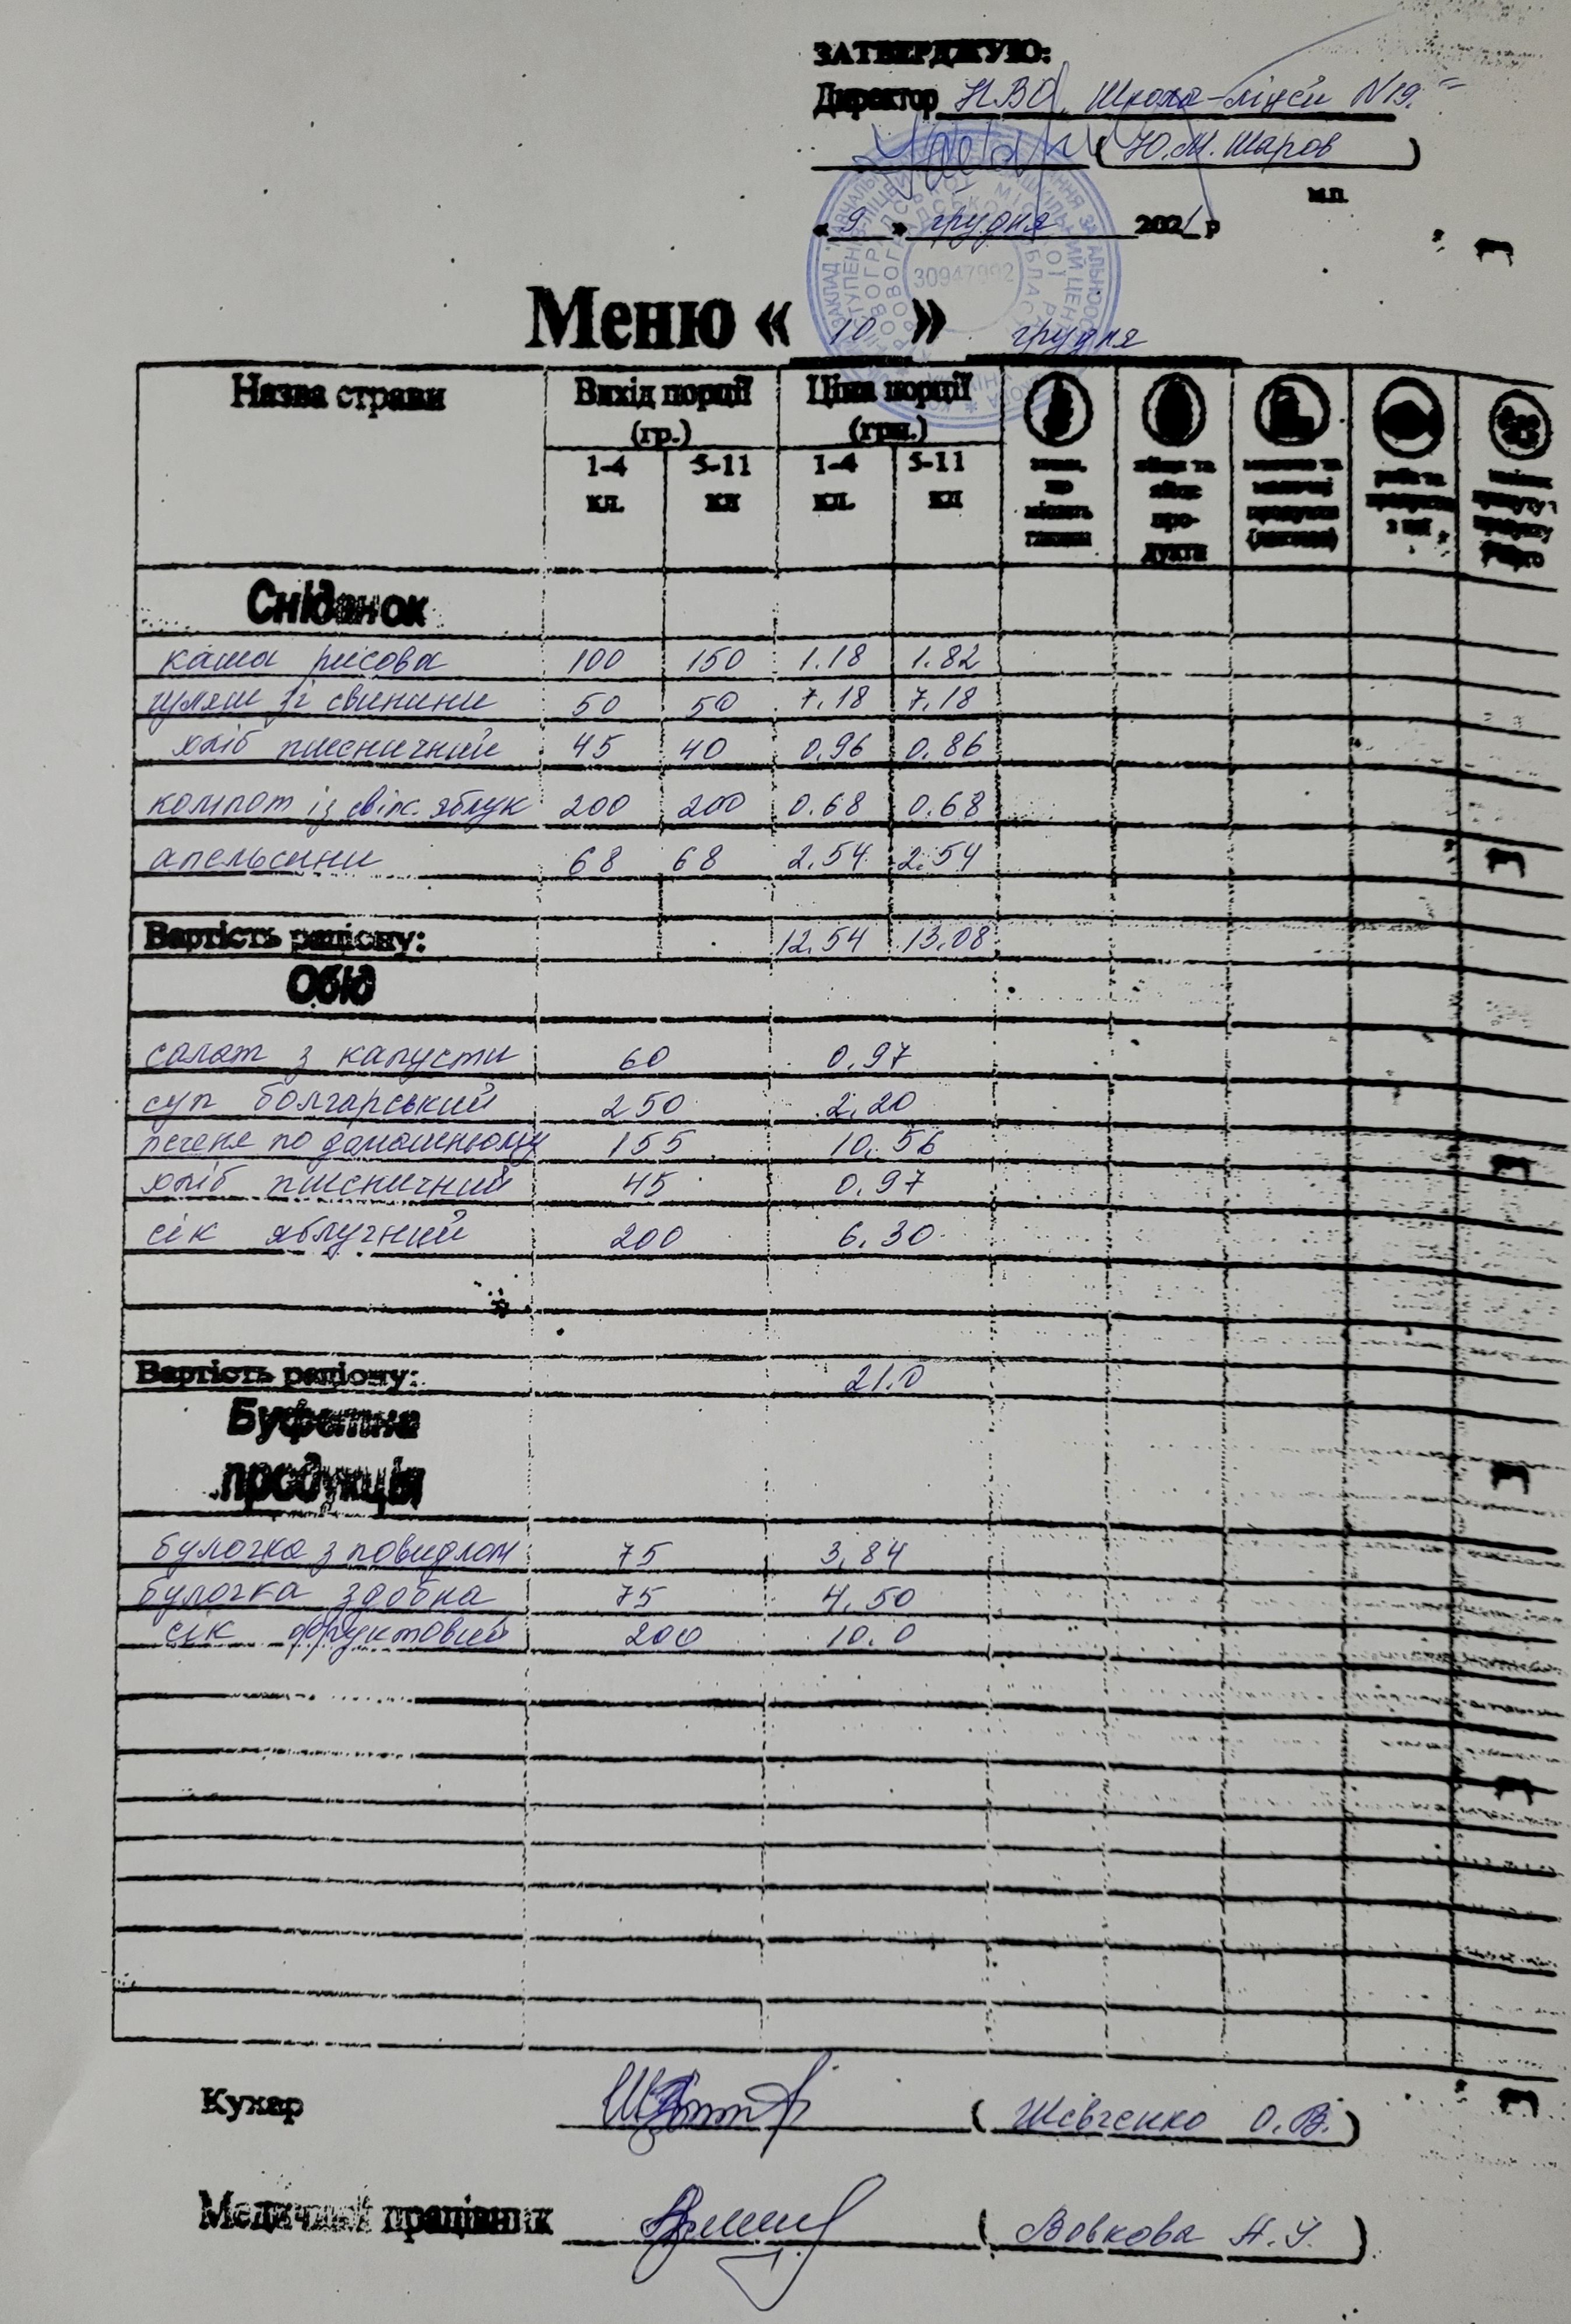 ЗАТВЕРДЖУЮ:
Директор НВО Школа-ліцей N19"
(Ю.М. Шаров)
м.п.
« 9 » грудня 2021 р
30947992
Меню « 10 » грудня
Назва страви Вихід порції (гр.) Ціна порції (грн.)
1-4 кл. 5-11 кл 1-4 кл. 5-11 кл
яйця та яйцепродукти
риба та продукти з неї
Сніданок
каша рисова 100 150 1.18 1.82
гуляш зі свинини 50 50 7,18 7,18
хліб пшеничний 45 40 0.96 0.86
компот із свіж. яблук 200 200 0.68 0.68
апельсини 68 68 2.54 2.54
Вартість раціону: 12.54 13.08
Обід
салат з капусти 60 0,97
суп болгарський 250 2,20
печеня по домашньому 155 10,56
хліб пшеничний 45 0,97
сік яблучний 200 6,30
Вартість раціону: 21.0
Буфетна продукція
булочка з повидлом 75 3,84
булочка здобна 75 4,50
сік фруктовий 200 10.0
Кухар (Шевченко О.В.)
Медичний працівник (Вовкова Н.І.)